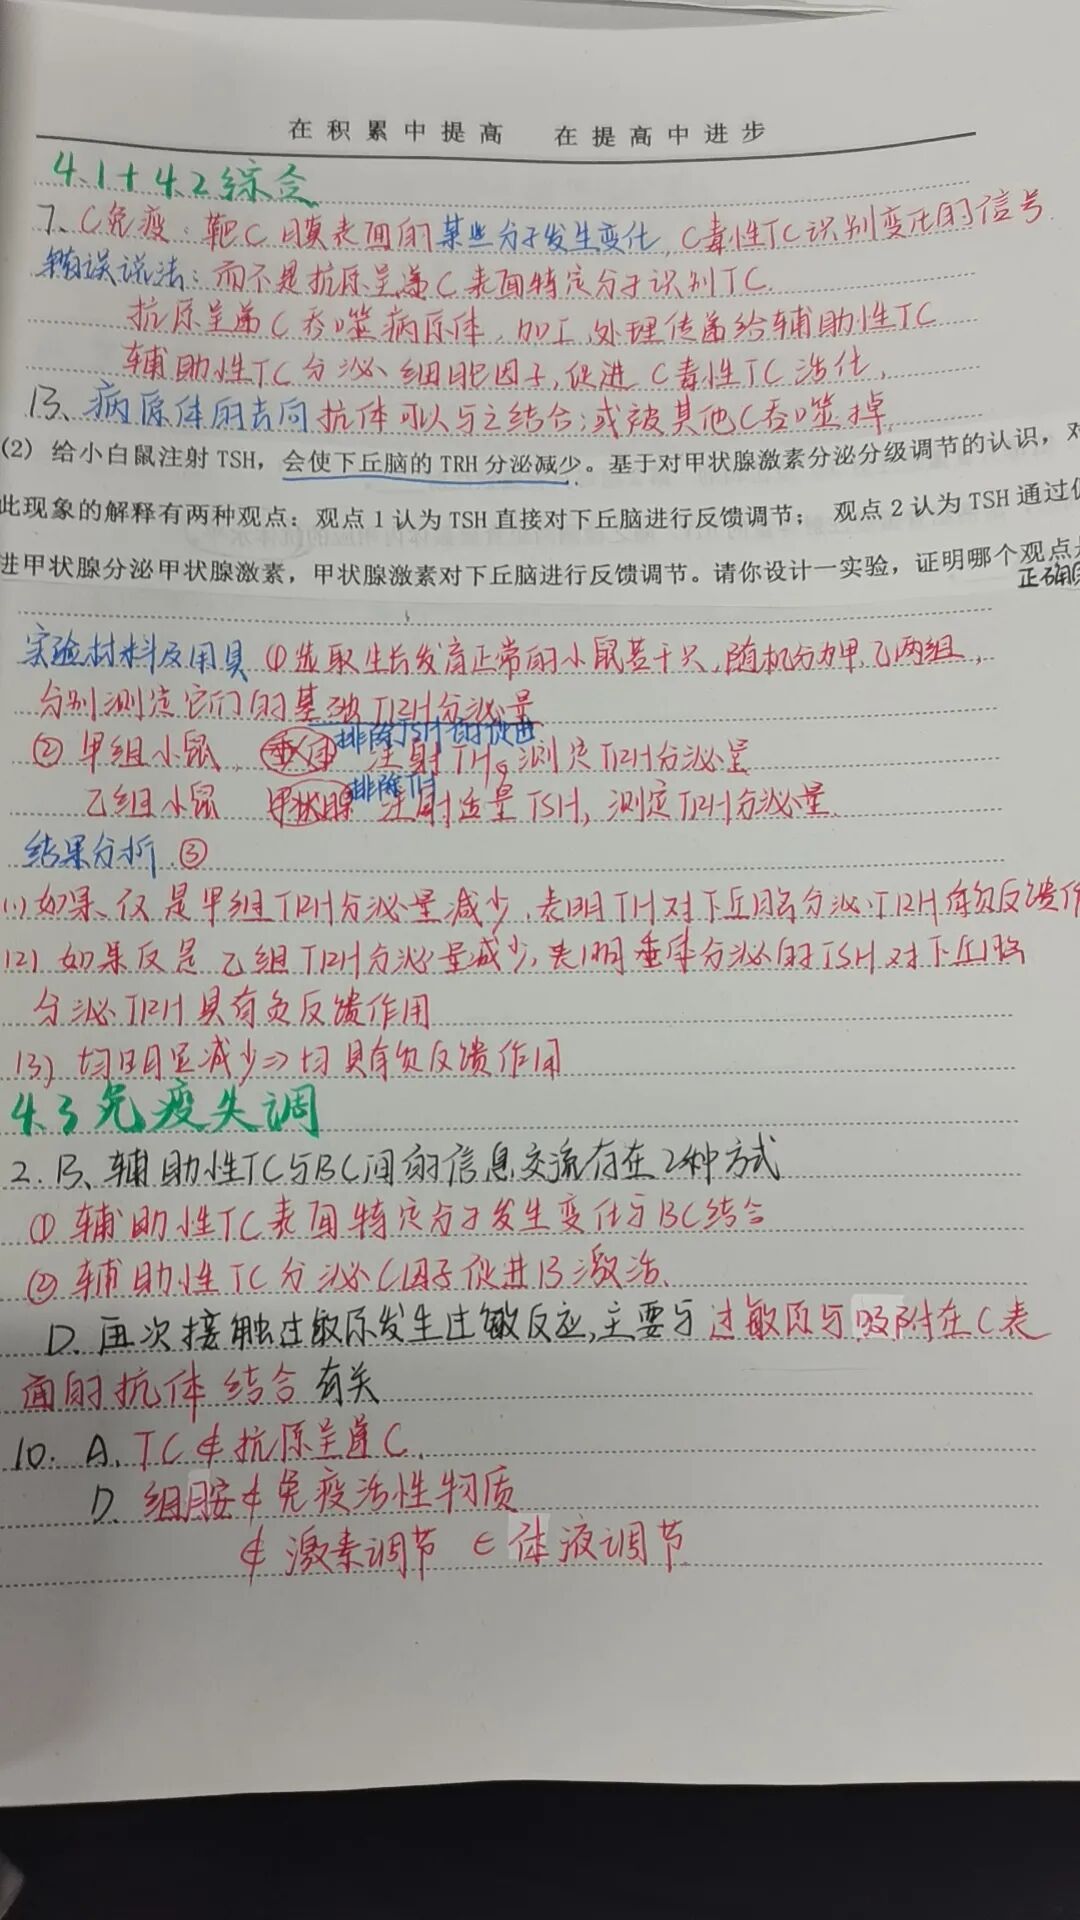 在积累中提高 在提高中进步
4.1+4.2综合
7、C免疫：靶C膜表面的某些分子发生变化，C毒性TC识别变化的信号
错误说法：而不是抗原呈递C表面特定分子识别TC.
抗原呈递C吞噬病原体，加工、处理传递给辅助性TC
辅助性TC分泌细胞因子，促进C毒性TC活化，
13、病原体的去向抗体可以与之结合；或被其他C吞噬掉
(2) 给小白鼠注射 TSH，会使下丘脑的 TRH 分泌减少。基于对甲状腺激素分泌分级调节的认识，对
此现象的解释有两种观点：观点 1 认为 TSH 直接对下丘脑进行反馈调节； 观点 2 认为 TSH 通过促
进甲状腺分泌甲状腺激素，甲状腺激素对下丘脑进行反馈调节。请你设计一实验，证明哪个观点是
正确的
实验材料及用具 ①选取生长发育正常的小鼠若干只，随机分为甲、乙两组，
分别测定它们的基础TRH分泌量
排除TSH的促进
② 甲组小鼠、垂体 注射TH。测定TRH分泌量
排除TH
乙组小鼠 甲状腺 注射适量TSH，测定TRH分泌量.
结果分析 ③
(1)如果、仅是甲组TRH分泌量减少、表明TH对下丘脑分泌TRH有负反馈作
(2) 如果反是乙组TRH分泌量减少，表明垂体分泌的TSH对下丘脑
分泌TRH具有负反馈作用
(3) 均明显减少⇒均具有负反馈作用
4.3免疫失调
2.B、辅助性TC与BC间的信息交流存在2种方式
① 辅助性TC表面特定分子发生变化与BC结合
② 辅助性TC分泌C因子促进B激活.
D. 再次接触过敏原发生过敏反应，主要与过敏原与吸附在C表
面的抗体结合有关
10. A. TC∉抗原呈递C.
D. 组胺∉免疫活性物质
∉激素调节 ∈体液调节